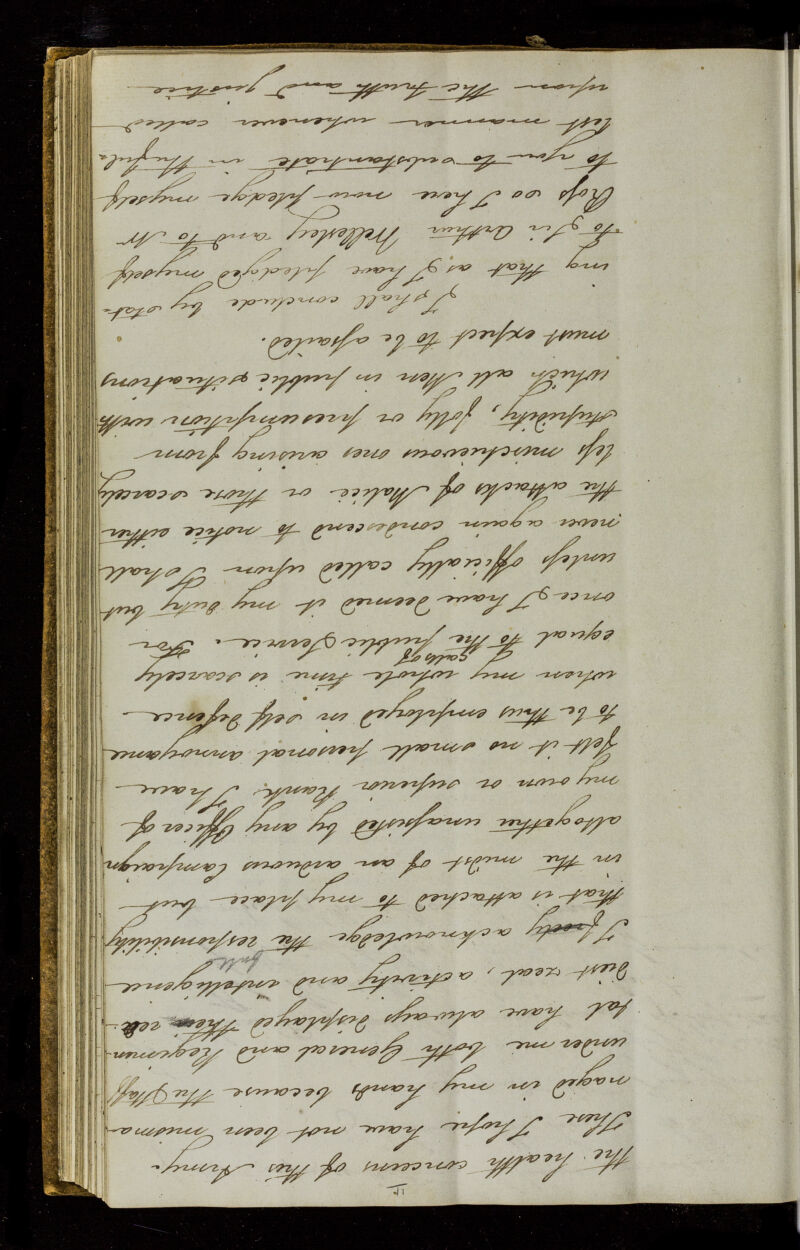 the health concerns of this Army.
These I hope have not been misma-
naged in my hands because the Staff
under me both General and Regimen-
tal have always displayed their rea-
diest zeal, activity and intelligence
fully
I freely acknowledge the responsibility
that is attached to my place but
in the midst of an arduous Campaign
altogether unassisted by any Officer of
my own or superior Rank I have
felt it no small personal annoyance
to be thus employed in self defence
when my whole time is scarcely
calls of
equal to the public Service. For
once I have deemed it my duty but
unless officially called upon I shall
never again condescend to notice either
the attacks of Malice or those scarcely
less mischievous ones arising from
stupidity, folly or presumption with
which all Men in public situations
must expect to be assailed.
I shall conclude by stat-
ing that as I have pledged myself
to Sir Arthur Wellesley and to Mr
Ross so I here now pledge myself
to you to substantiate in the ful-
lest manner whenever called
upon the truth and justice